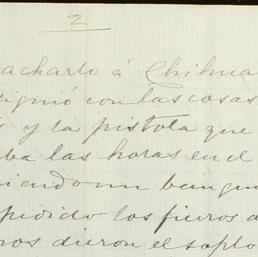 2
acharlo á Chihua
signió con las cosas
y la pistola que
ba las horas en el
iendo un banque
pedido los fieros d
ros dieron el soplo